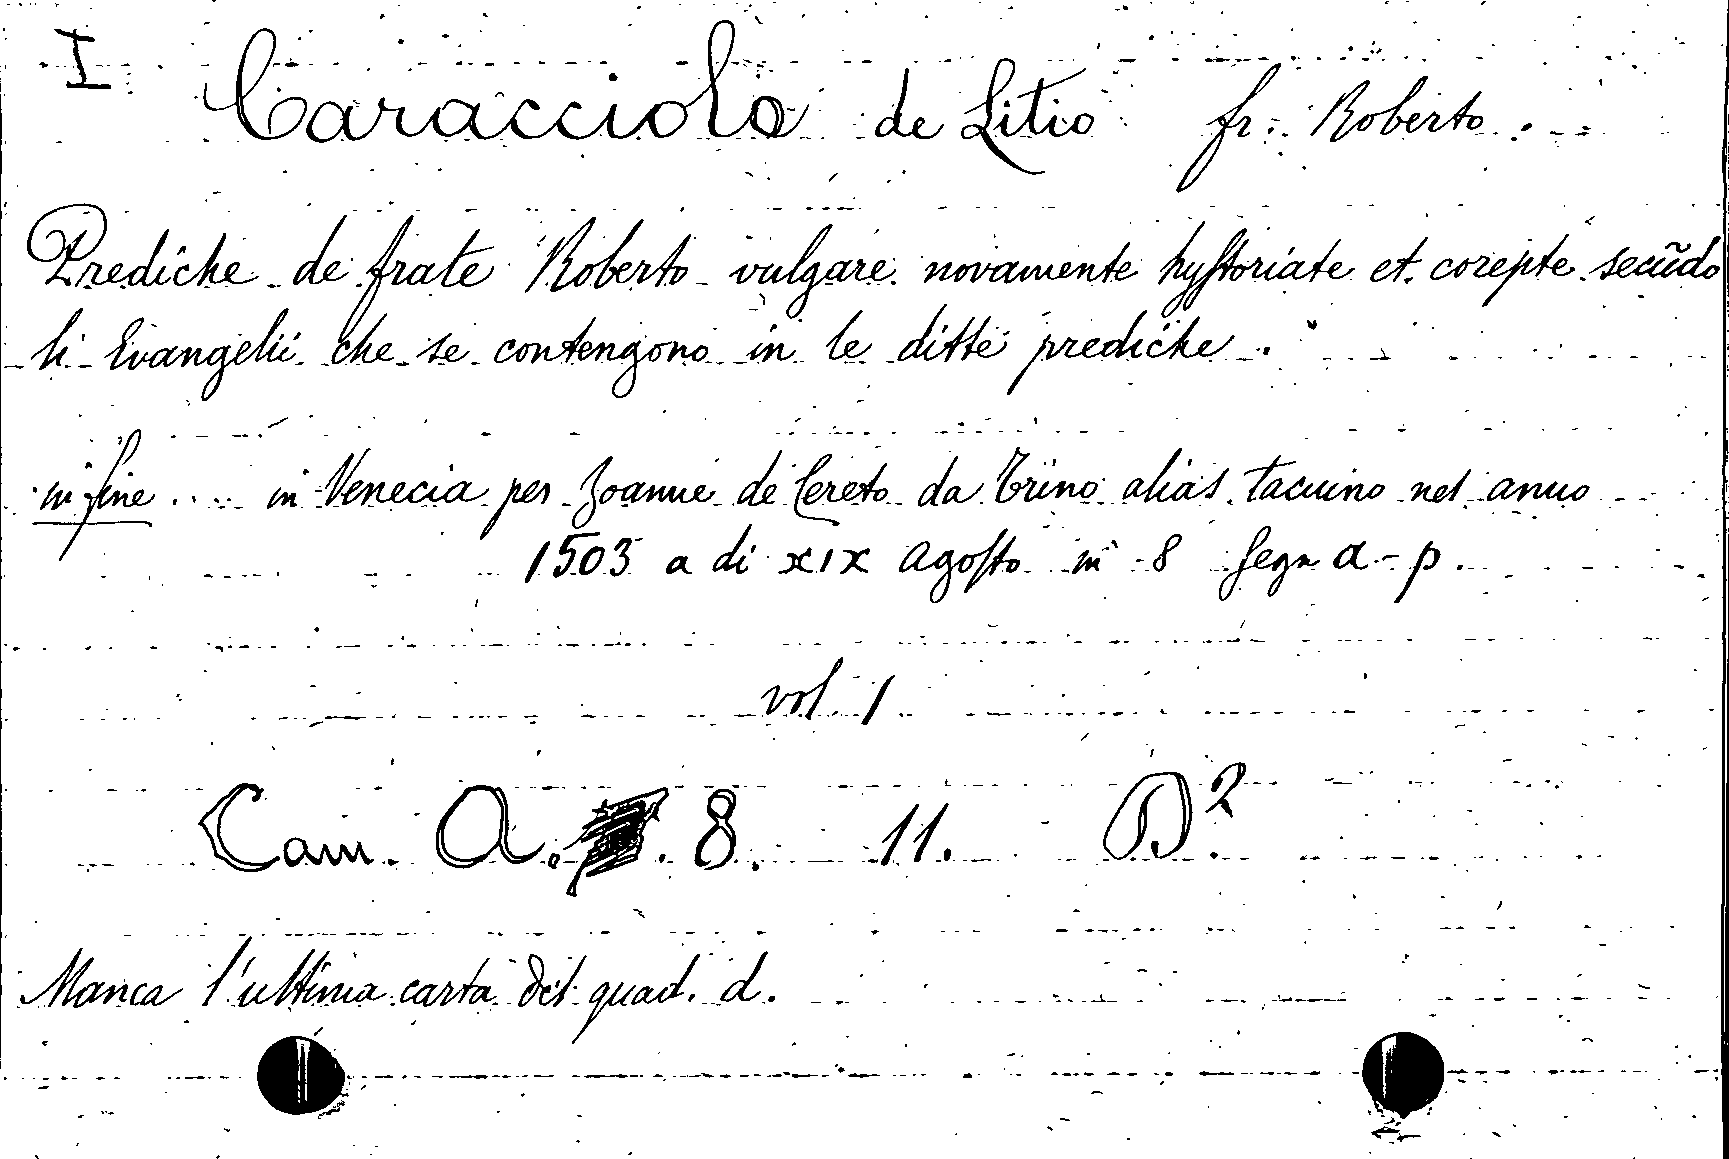 I Caracciolo de Litio fr. Roberto.
Prediche de frate Roberto vulgare novamente hystoriate et corepte secũdo
li Evangelii che se contengono in le ditte prediche.
in fine .... in Venecia per Zoanne de Cereto da Trino alias tacuino nel anno
1503 a di xix agosto in 8 segn a-p.
vol 1
Cam. A. 8. 11. D².
Manca l'ultima carta del quad. d.